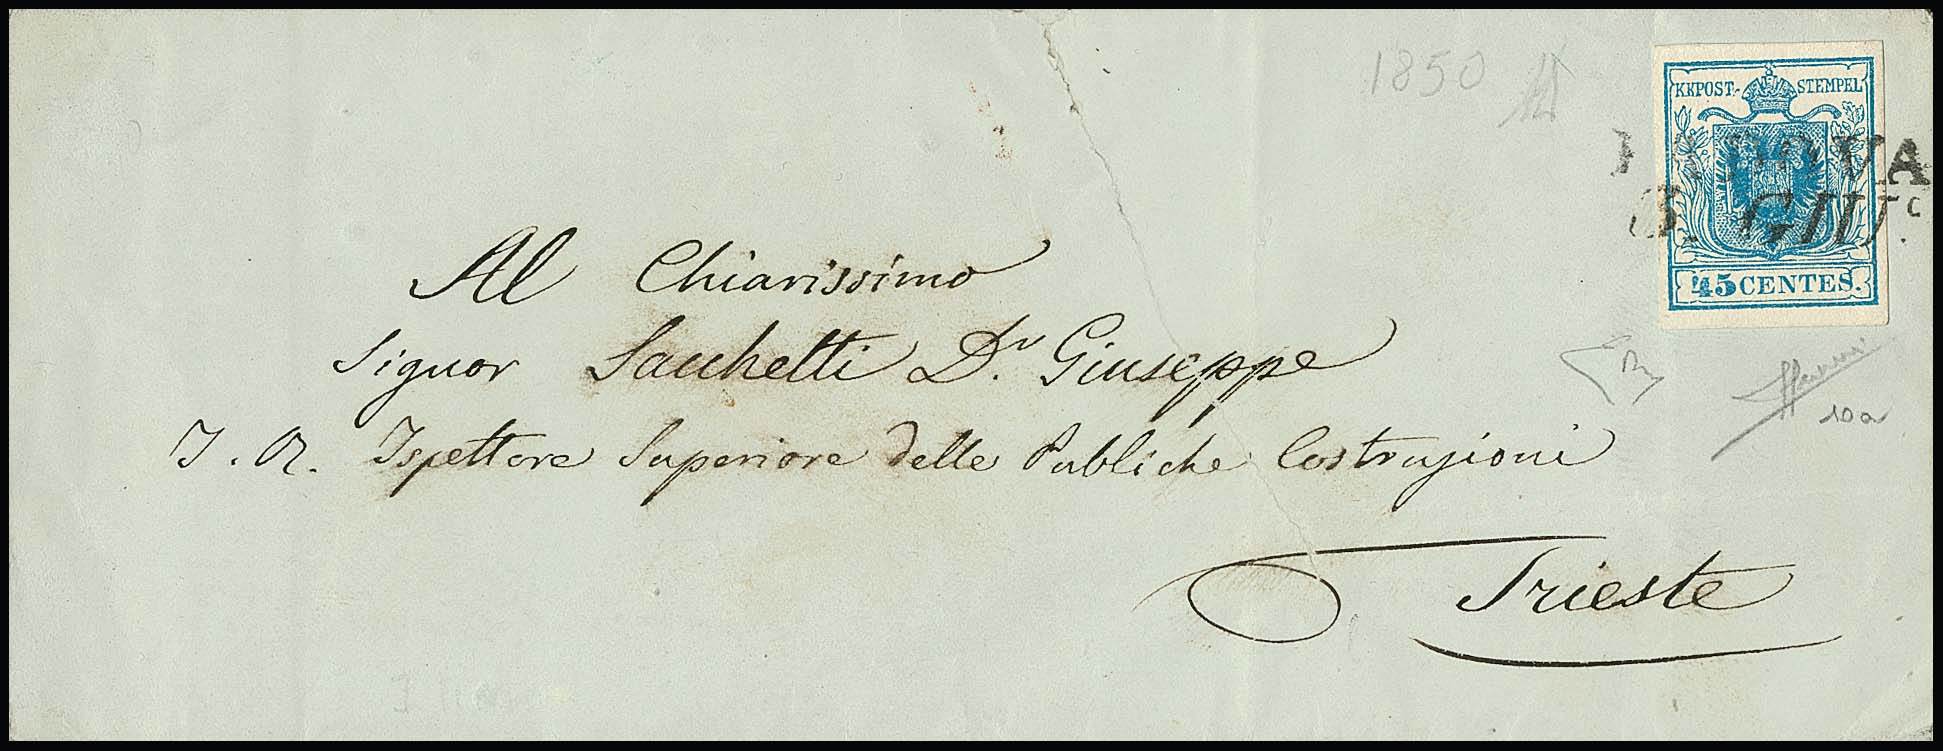 1850
KKPOST-STEMPEL
PADOVA
6. GIUG.
45 CENTES.
Al Chiarissimo
Signor Sacchetti Dr. Giuseppe
I. R. Ispettore Superiore delle Pubbliche Costruzioni
Trieste
10a